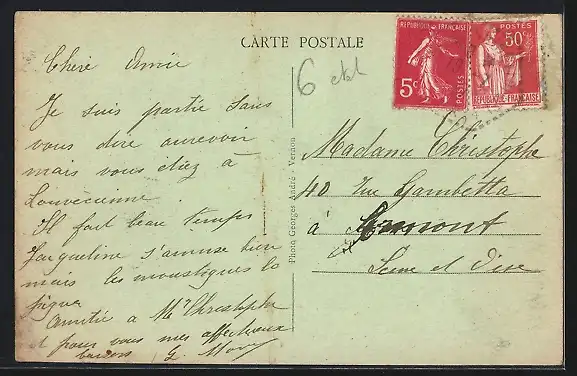 CARTE POSTALE
RÉPUBLIQUE FRANÇAISE
5c
POSTES
POSTES
50c
RÉPUBLIQUE FRANÇAISE
6
Chère Amie
Je suis partie sans
vous dire aurevoir
mais vous étiez à
Louvecienne.
Il fait beau temps
Jacqueline s'amuse bien
mais les moustiques la
pique
Amitié a Mr Christophe
et pour vous mes affectueux
baisers G.
Photo Georges André - Vernon
Madame Christophe
40 rue Gambetta
à Ermont
Seine et Oise